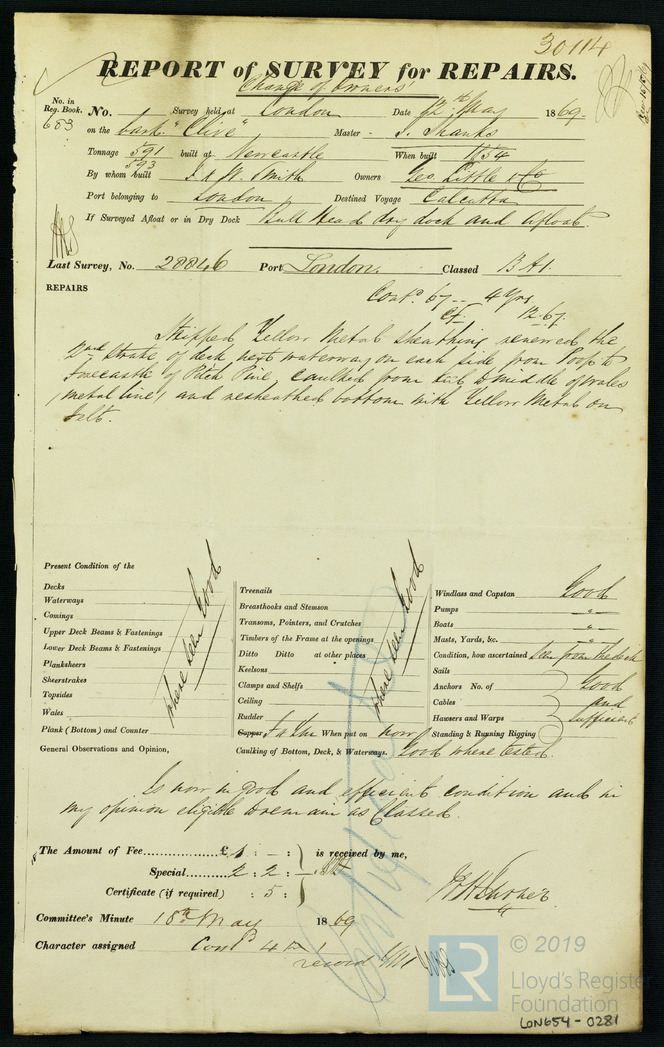 30114
REPORT of SURVEY for REPAIRS.
Change of Owners
No. in Reg. Book. No. Survey held at London Date 12th May 1869
683 on the bark "Clive" Master J. Shanks
Tonnage 591 built at Newcastle When built 1854
593
By whom built T & W. Smith Owners Geo. Little & Co
Port belonging to London Destined Voyage Calcutta
If Surveyed Afloat or in Dry Dock Bull Head dry dock and afloat.
Last Survey, No. 28846 Port London. Classed 13 A1.
REPAIRS Contd 67 -- 4 Yrs
12.67.
Stripped Yellow Metal sheathing renewed the
2nd strake of deck next waterway on each side from Poop to
Forecastle of Pitch Pine, caulked from rail to middle of wales
metal line, and resheathed bottom with Yellow Metal on
felt.
Present Condition of the
Decks
Waterways
Comings
Upper Deck Beams & Fastenings
Lower Deck Beams & Fastenings
Planksheers
Sheerstrakes
Topsides
Wales
Plank (Bottom) and Counter
where seen Good
Treenails
Breasthooks and Stemson
Transoms, Pointers, and Crutches
Timbers of the Frame at the openings
Ditto Ditto at other places
Keelsons
Clamps and Shelfs
Ceiling
Rudder
where seen Good
Copper, When put on now
Windlass and Capstan Good
Pumps "
Boats "
Masts, Yards, &c. "
Condition, how ascertained seen from the deck
Sails
Anchors No. of Good
Cables and
Hawsers and Warps sufficient
Standing & Running Rigging
General Observations and Opinion, Caulking of Bottom, Deck, & Waterways. Good where tested.
Is now in good and efficient condition and in
my opinion eligible to remain as Classed.
The Amount of Fee............£ 1 : - : is received by me,
Special........ 2 : 2 : -
Certificate (if required) : 5 :
Committee's Minute 18th May 1869
Character assigned Contd 4
record
© 2019
LR Lloyd's Register
Foundation
LON654-0281